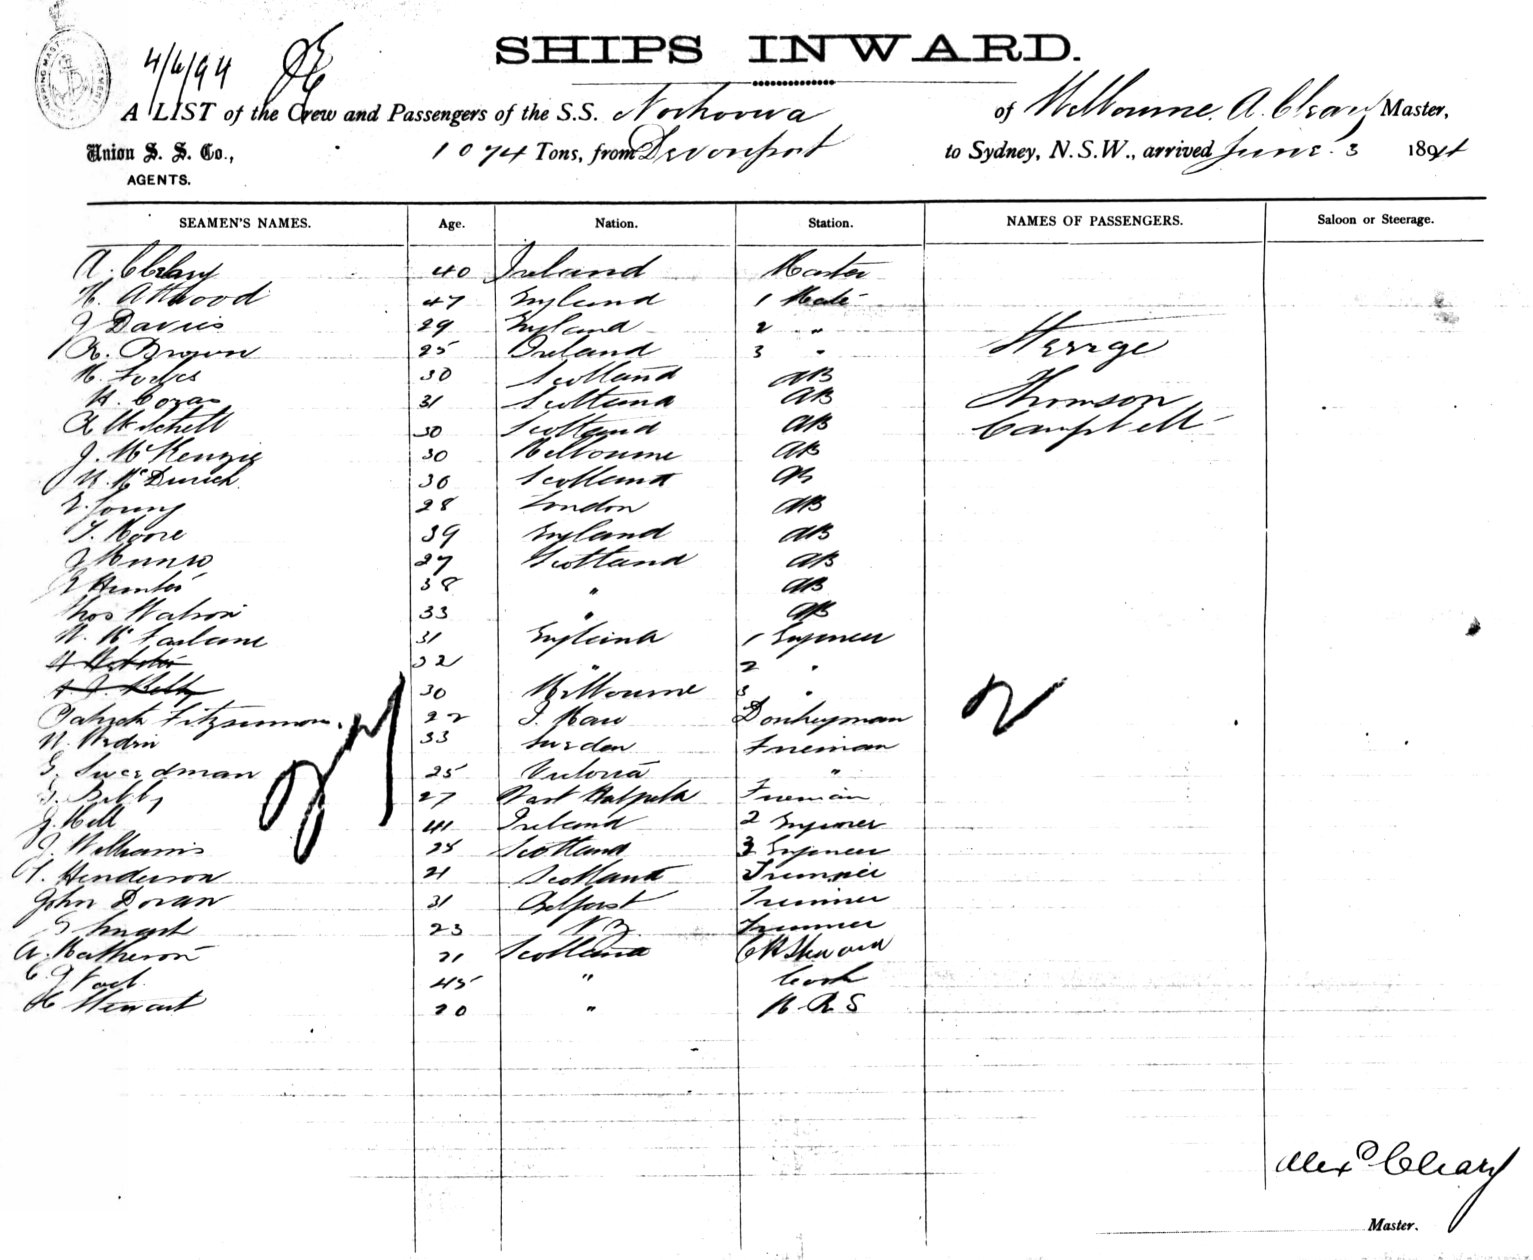 SHIPS INWARD.
4/6/94
A LIST of the Crew and Passengers of the S.S. of Melbourne, A. Cleary Master,
Union S. S. Co., 1074 Tons, from Devonport to Sydney, N.S.W., arrived June 3 1894
AGENTS.
SEAMEN'S NAMES. Age. Nation. Station. NAMES OF PASSENGERS. Saloon or Steerage.
A. Cleary 40 Ireland Master
H. Attwood 47 England 1 Mate
J Davies 29 England 2 "
R. Brown 25 Ireland 3 " Steerge
30 Scotland AB
31 Scotland AB Thomson
Mitchell 30 Scotland AB Campbell
J. McKenzie 30 Melbourne AB
30 Scotland AB
Young 28 London AB
T. Moore 39 England AB
J Munro 27 Scotland AB
Hunter 38 " AB
Thos Watson 33 " AB
McFarlane 31 England 1 Engineer
32 " 2 "
30 Melbourne 3 "
Patrick Fitzsimmon. 22 Donkeyman
33 Sweden Fireman
G. Sweedman 25 Victoria "
Bibby 27 Fireman
J. Hill 41 Ireland 2 Engineer
J. Williams Scotland 3 Engineer
Henderson 21 Scotland Trimmer
27
2
John Doran 31 Belfast Trimmer
Smart 23 N Z Trimmer
A. Matheson 21 Scotland
45 " Cook
Stewart 20 "
Alexr Cleary
Master.